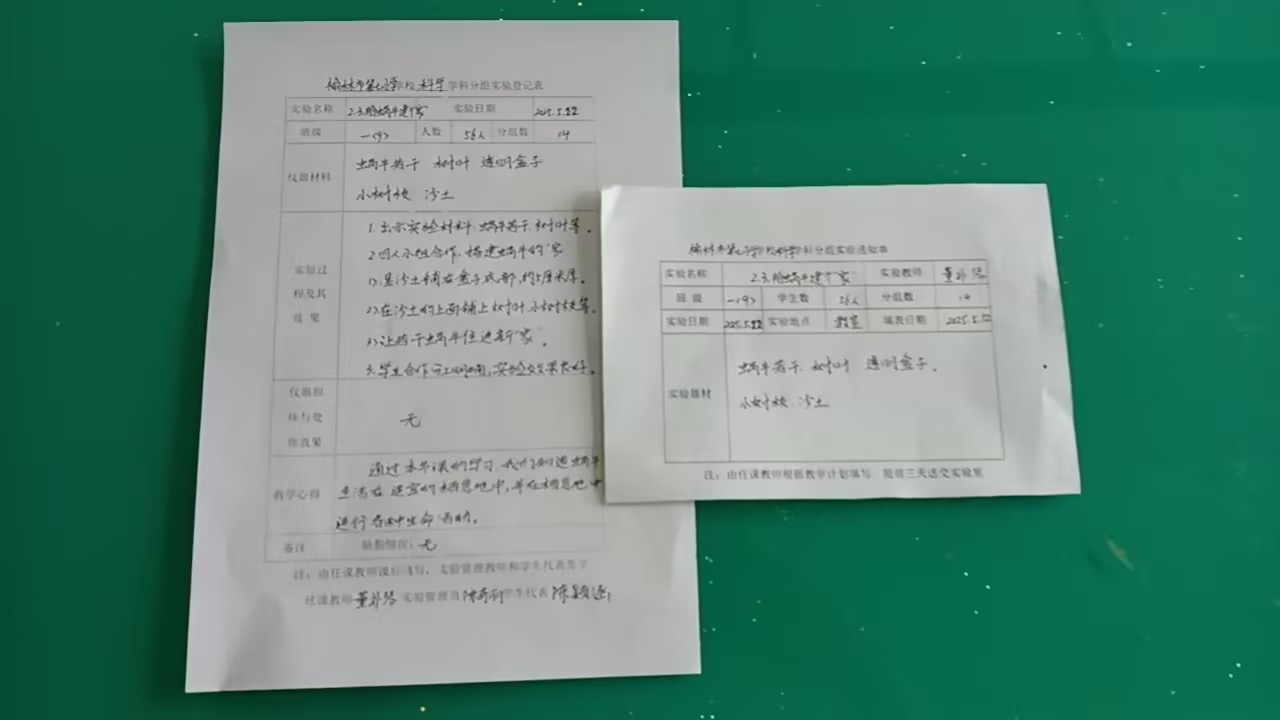 榆林市第七小学学校 科学 学科分组实验登记表
实验名称 2.3给蜗牛建个家 实验日期 2025.5.22
班级 一(9) 人数 56人 分组数 14
仪器材料 蜗牛若干 树叶 透明盒子
小树枝 沙土
实验过程及其效果
1.出示实验材料 蜗牛若干、树叶等。
2.四人小组合作,搭建蜗牛的"家
1>.湿沙土铺在盒子底部,约5厘米厚。
2>在沙土的上面铺上树叶、小树枝等。
3>让若干蜗牛住进新"家"。
3.学生合作分工明确,实验效果良好。
仪器损坏与处理效果 无
教学心得 通过本节课的学习,我们知道蜗牛
生活在适宜的栖息地中,并在栖息地中
进行各种生命活动。
备注 缺勤情况:无
注:由任课教师课后填写,实验管理教师和学生代表签字
任课教师 实验管理员 学生代表
榆林市第七小学学校科学学科分组实验通知单
实验名称 2.3给蜗牛建个"家" 实验教师
班 级 一(9) 学生数 56人 分组数 14
实验日期 2025.5.22 实验地点 教室 填表日期 2025.5.12
实验器材 蜗牛若干、树叶 透明盒子、
小树枝、沙土
注:由任课教师根据教学计划填写,提前三天送交实验室